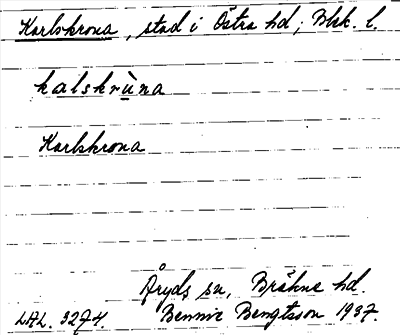 Karlskrona, stad i Östra hd; Blek. l.
kalskrùna
Karlskrona
Åryds sn, Bräkne hd.
LAL. 3274. Bennie Bengtsson 1937.